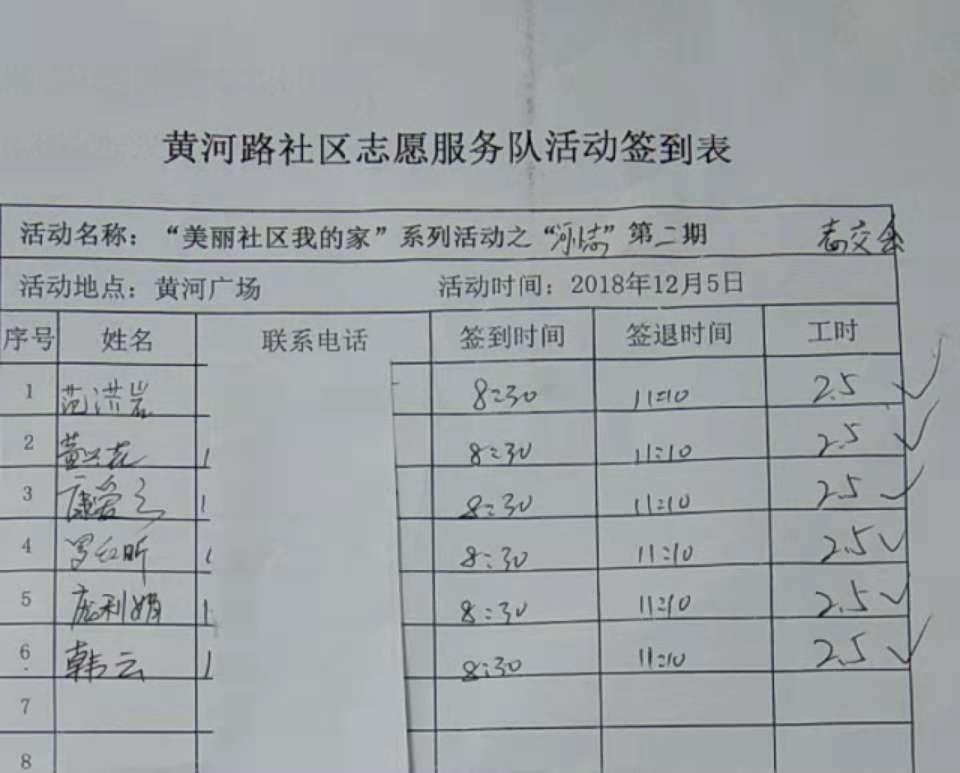 黄河路社区志愿服务队活动签到表
活动名称：“美丽社区我的家”系列活动之“”第二期
活动地点：黄河广场 活动时间：2018年12月5日
序号 姓名 联系电话 签到时间 签退时间 工时
1 范洪岩 8:30 11:10 2.5 ✓
2 8:30 11:10 2.5 ✓
3 康爱云 8:30 11:10 2.5 ✓
4 罗红昕 8:30 11:10 2.5 ✓
5 庞利娟 8:30 11:10 2.5 ✓
6 韩云 8:30 11:10 2.5 ✓
7
8